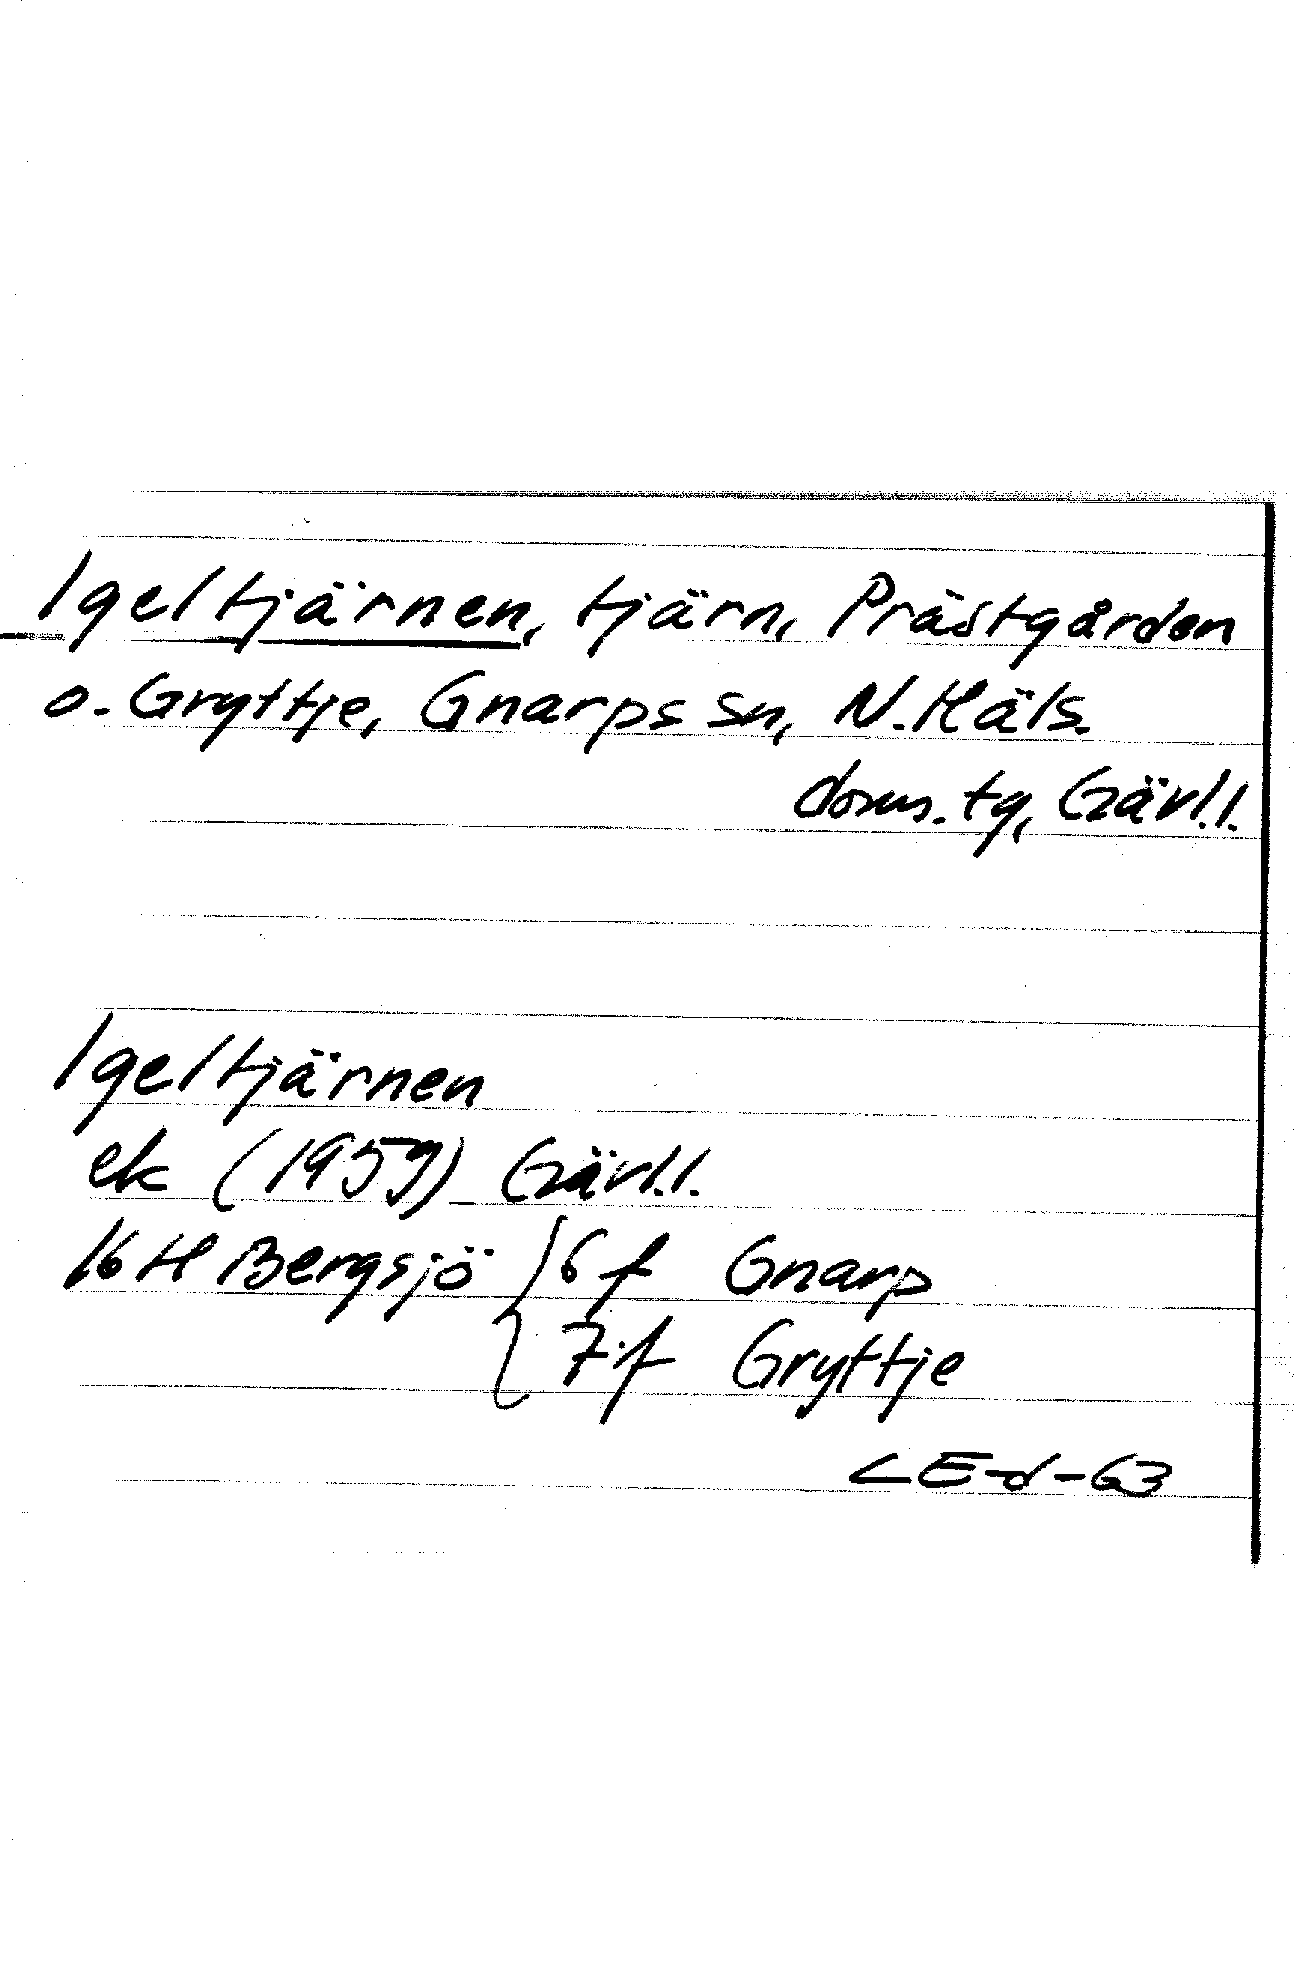 Igeltjärnen, tjärn, Prästgården
o. Gryttje, Gnarps sn, N. Häls.
doms. tg, Gävl.l.
Igeltjärnen
ek (1959) Gävl.l.
16 H Bergsjö } 6 f Gnarp
7 f Gryttje
LE-d-63